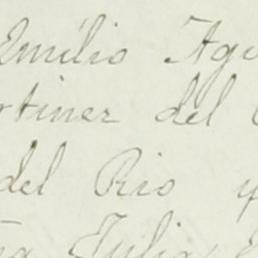 Emilio Agu
rtinez del
del Rio y
ña Julia